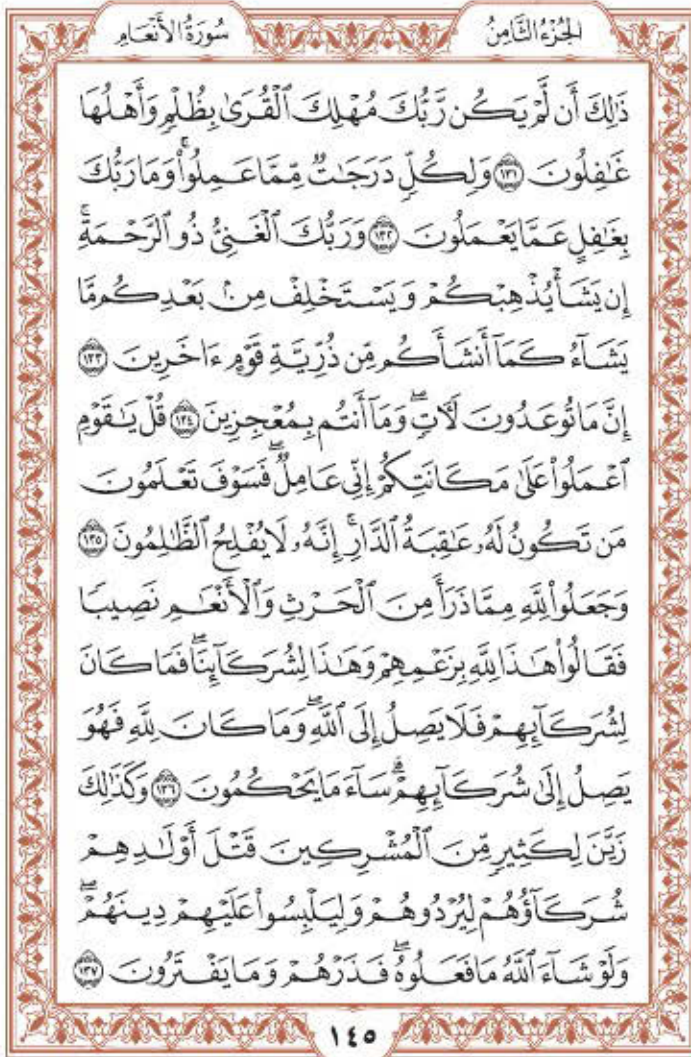 سُورَةُ الأَنْعَامِ
الجُزْءُ الثَّامِنُ
ذَٰلِكَ أَن لَّمْ يَكُن رَّبُّكَ مُهْلِكَ ٱلْقُرَىٰ بِظُلْمٍ وَأَهْلُهَا
غَٰفِلُونَ ١٣١ وَلِكُلٍّ دَرَجَٰتٌ مِّمَّا عَمِلُوا۟ۚ وَمَا رَبُّكَ
بِغَٰفِلٍ عَمَّا يَعْمَلُونَ ١٣٢ وَرَبُّكَ ٱلْغَنِىُّ ذُو ٱلرَّحْمَةِۚ
إِن يَشَأْ يُذْهِبْكُمْ وَيَسْتَخْلِفْ مِنۢ بَعْدِكُم مَّا
يَشَآءُ كَمَآ أَنشَأَكُم مِّن ذُرِّيَّةِ قَوْمٍ ءَاخَرِينَ ١٣٣
إِنَّ مَا تُوعَدُونَ لَـَٔاتٍۖ وَمَآ أَنتُم بِمُعْجِزِينَ ١٣٤ قُلْ يَٰقَوْمِ
ٱعْمَلُوا۟ عَلَىٰ مَكَانَتِكُمْ إِنِّى عَامِلٌۖ فَسَوْفَ تَعْلَمُونَ
مَن تَكُونُ لَهُۥ عَٰقِبَةُ ٱلدَّارِۚ إِنَّهُۥ لَا يُفْلِحُ ٱلظَّٰلِمُونَ ١٣٥
وَجَعَلُوا۟ لِلَّهِ مِمَّا ذَرَأَ مِنَ ٱلْحَرْثِ وَٱلْأَنْعَٰمِ نَصِيبًا
فَقَالُوا۟ هَٰذَا لِلَّهِ بِزَعْمِهِمْ وَهَٰذَا لِشُرَكَآئِنَاۖ فَمَا كَانَ
لِشُرَكَآئِهِمْ فَلَا يَصِلُ إِلَى ٱللَّهِۖ وَمَا كَانَ لِلَّهِ فَهُوَ
يَصِلُ إِلَىٰ شُرَكَآئِهِمْۗ سَآءَ مَا يَحْكُمُونَ ١٣٦ وَكَذَٰلِكَ
زَيَّنَ لِكَثِيرٍ مِّنَ ٱلْمُشْرِكِينَ قَتْلَ أَوْلَٰدِهِمْ
شُرَكَآؤُهُمْ لِيُرْدُوهُمْ وَلِيَلْبِسُوا۟ عَلَيْهِمْ دِينَهُمْۖ
وَلَوْ شَآءَ ٱللَّهُ مَا فَعَلُوهُۖ فَذَرْهُمْ وَمَا يَفْتَرُونَ ١٣٧
١٤٥